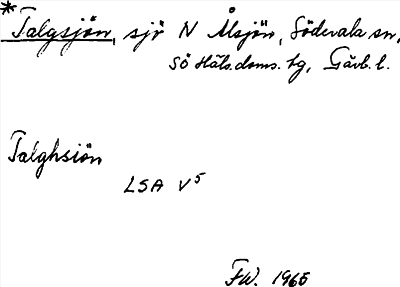 *Talgsjön, sjö N Ålsjön, Söderala sn,
Sö Häls. doms. hg, Gävb. l.
Talghsiön
LSA V5
FW. 1965